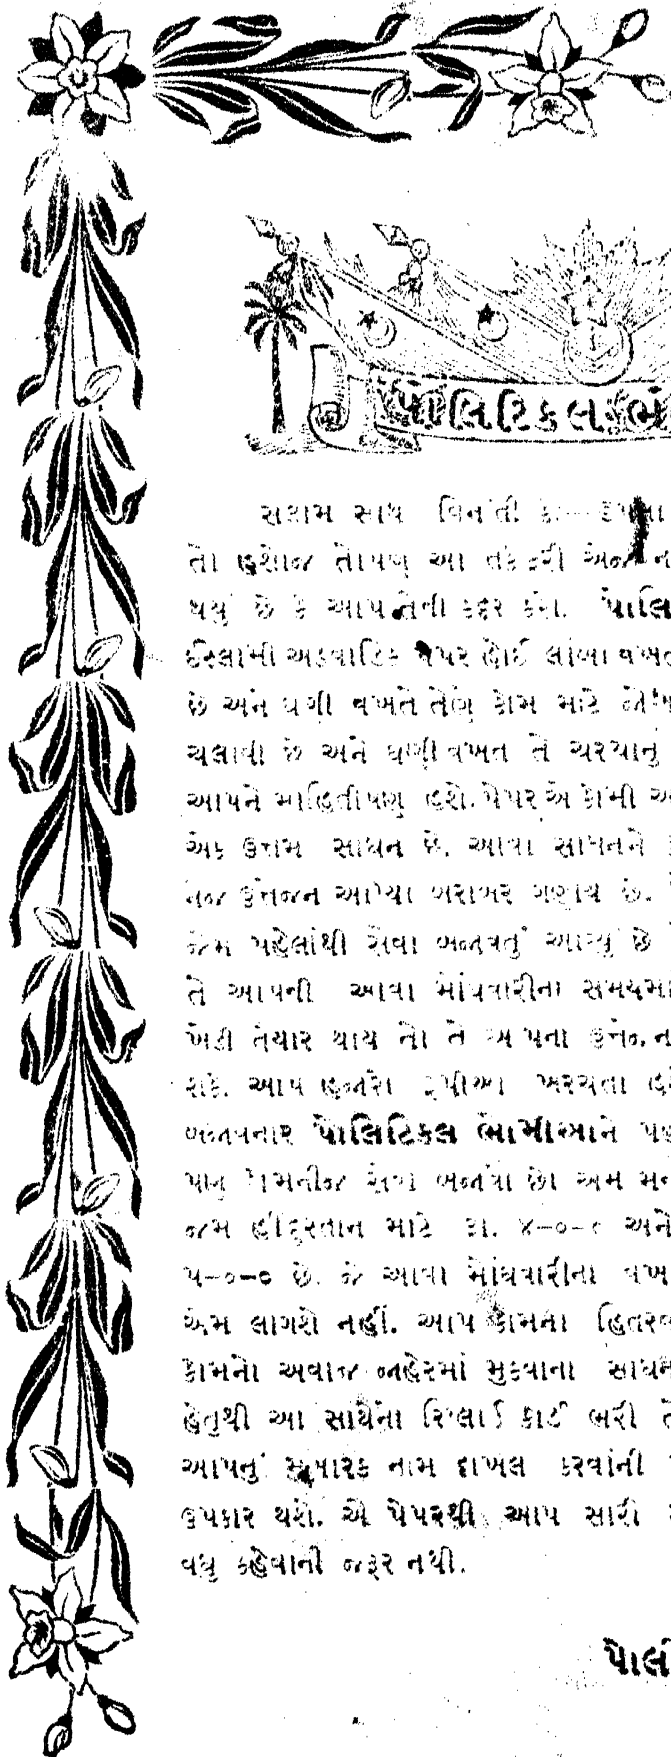 પોલિટિકલ ભો
સલામ સાથ વિનંતી કે
તો હશેજ તોપણ આ તક ફરી
થયું છે કે આપ તેની કદર કરો. પોલિ
ઈસ્લામી અઠવાડિક પેપર હોઈ લાંબા વખત
છે અને ઘણી વખતે તેણે કોમ માટે
ચલાવી છે અને ઘણી વખત તે ચરચાનું
આપને માહિતીપણુ હશે. પેપર એ કોમી
એક ઉત્તમ સાધન છે. આવા સાધનને
નેજ ઉત્તેજન આપ્યા બરાબર ગણાય છે.
જેમ પહેલાંથી સેવા બજાવતું આવ્યું છે
તે આપની આવા મોંઘવારીના સમયમાં
ખેડી તૈયાર થાય તો તે આપના
શકે. આપ હજારો રૂપીઆ ખરચતા
બજાવનાર પોલિટિકલ ભોમીઆને પણ
પણ કોમનીજ સેવા બજાવો છો એમ
જેમ હીંદુસ્તાન માટે રૂા. ૪-૦-૦ અને
૫-૦-૦ છે. જે આવા મોંઘવારીના વખ
એમ લાગશે નહીં. આપ કોમના
કોમનો અવાજ જાહેરમાં મુકવાના સાધન
હેતુથી આ સાથેના રિપ્લાઈ કાર્ડ ભરી
આપનું મુબારક નામ દાખલ કરવાંની
ઉપકાર થશે. એ પેપરથી આપ સારી
વધુ કહેવાની જરૂર નથી.
પોલી